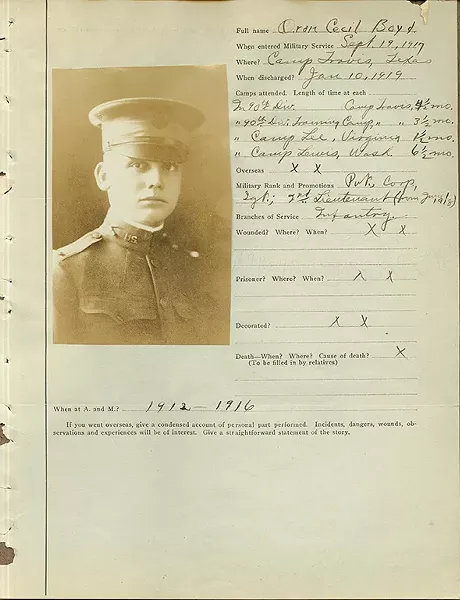 Full name Oran Cecil Boyd
When entered Military Service Sept. 19, 1917
Where? Camp Travis, Texas
When discharged? Jan 10, 1919
Camps attended. Length of time at each
In 90th Div. Camp Travis, 4½ mo.
" 90th Div; Training Camp, " " 3½ mo.
" Camp Lee, Virginia 1½ mo.
" Camp Lewis, Wash. 6½ mo.
Overseas X X
Military Rank and Promotions Pvt., Corp.,
Sgt.; 2nd Lieutenant (from June 1918)
Branches of Service Infantry
Wounded? Where? When? X X
Prisoner? Where? When? X X
Decorated? X X
Death—When? Where? Cause of death? X
(To be filled in by relatives)
U.S.
When at A. and M.? 1912 — 1916
If you went overseas, give a condensed account of personal part performed. Incidents, dangers, wounds, ob-
servations and experiences will be of interest. Give a straightforward statement of the story.